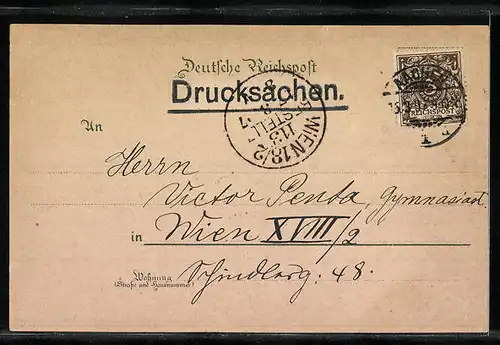 Deutsche Reichspost
Drucksachen.
REICHSPOST
WIEN 18/2
BESTELLT
An
Herrn
Victor Penta, Gymnasiast.
in Wien XVIII/2
Wohnung
(Straße und Hausnummer)
Schindlerg: 48.